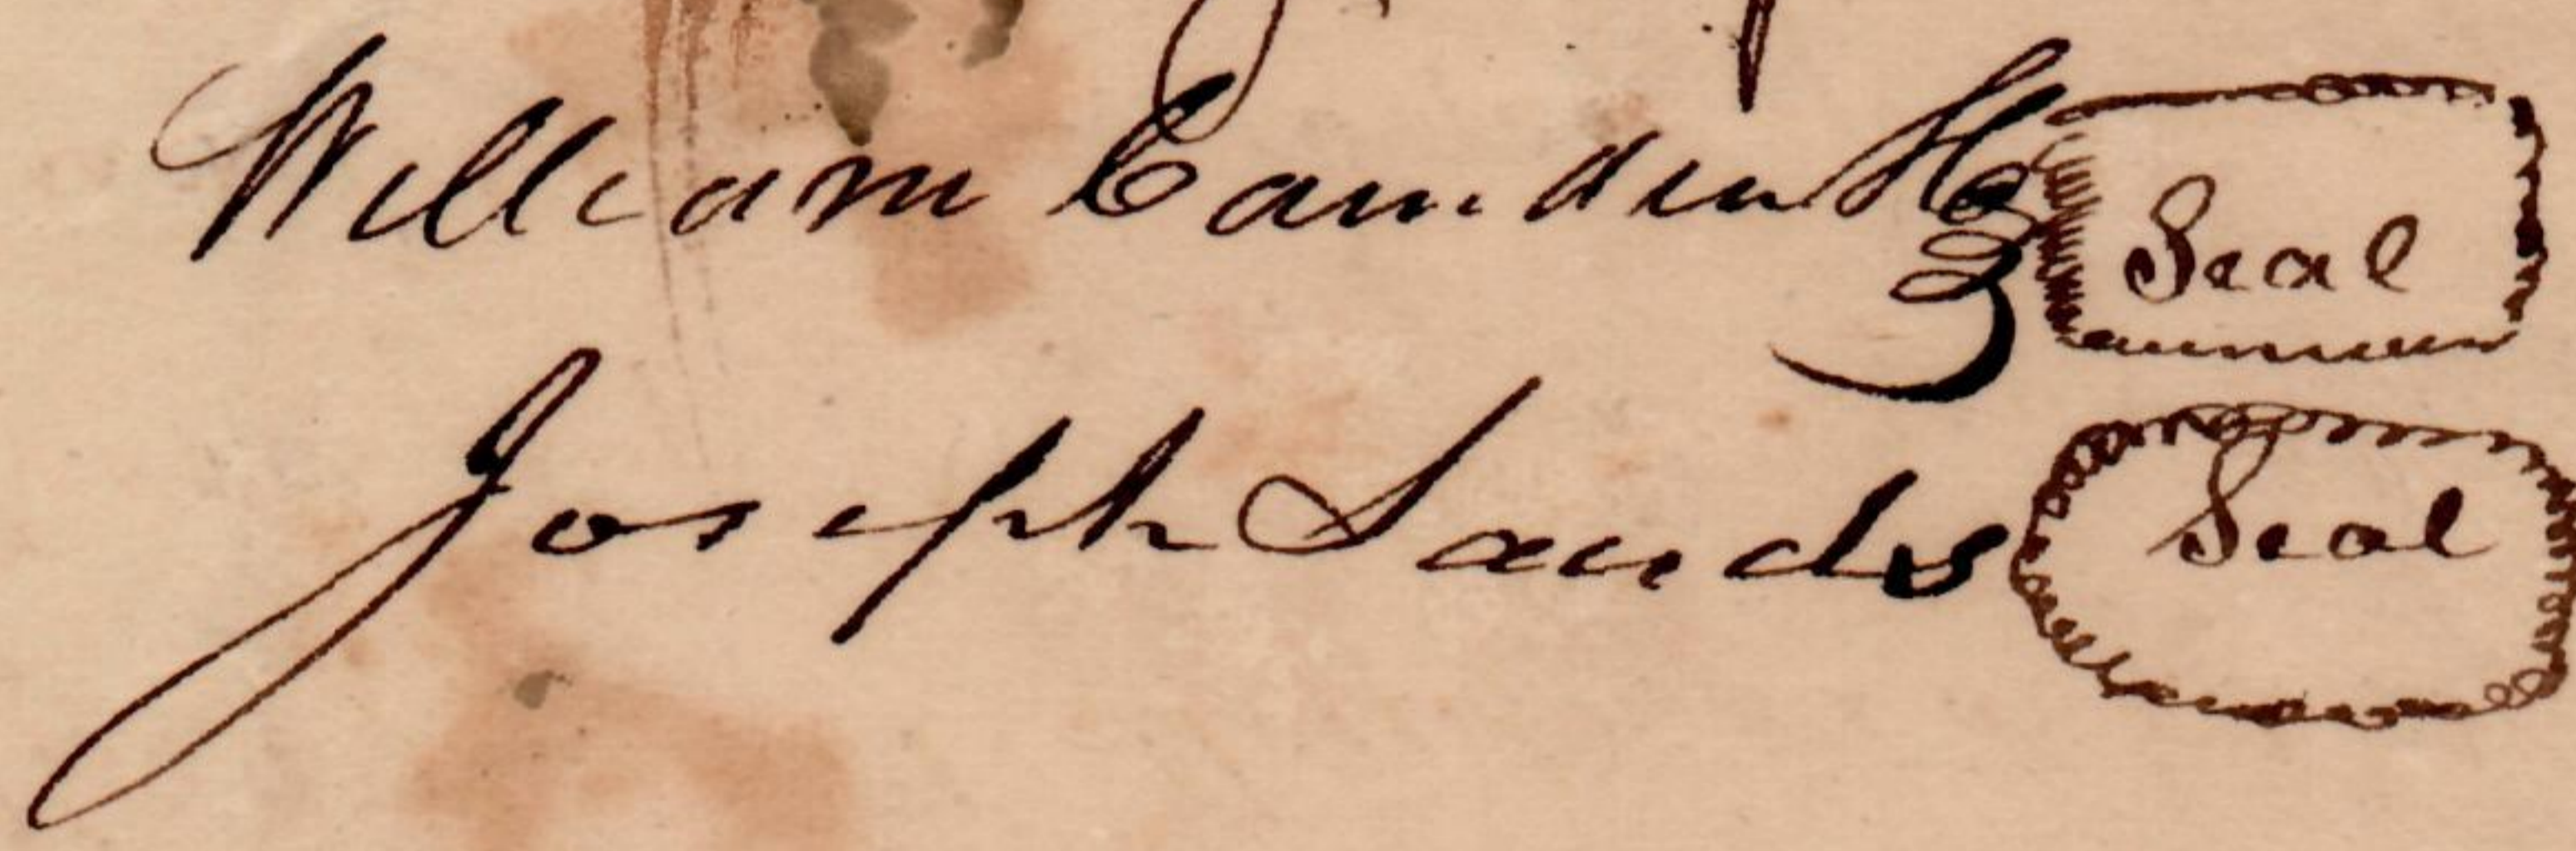 William Camden Seal
Joseph Sands Seal